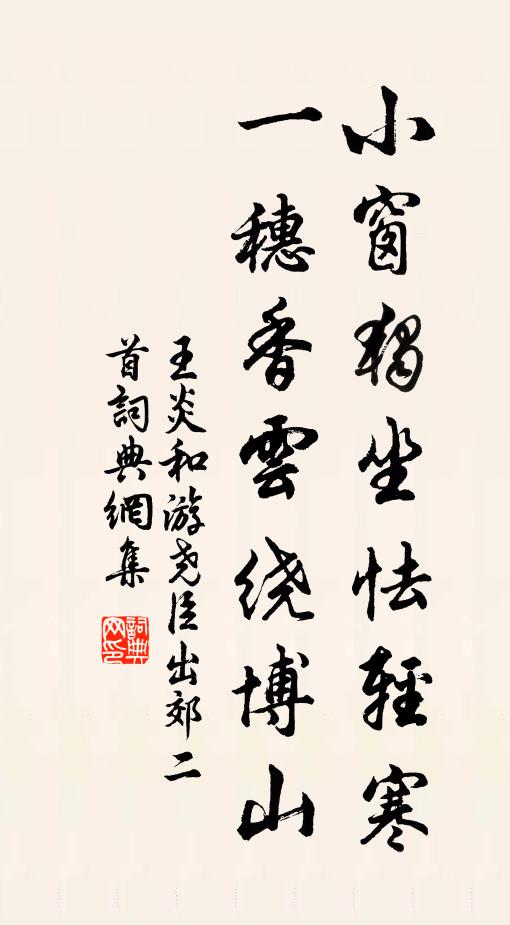 小窗獨坐怯輕寒
一穗香雲绕博山
王炎和游尧臣出郊二
首詞典網集
詞典網印